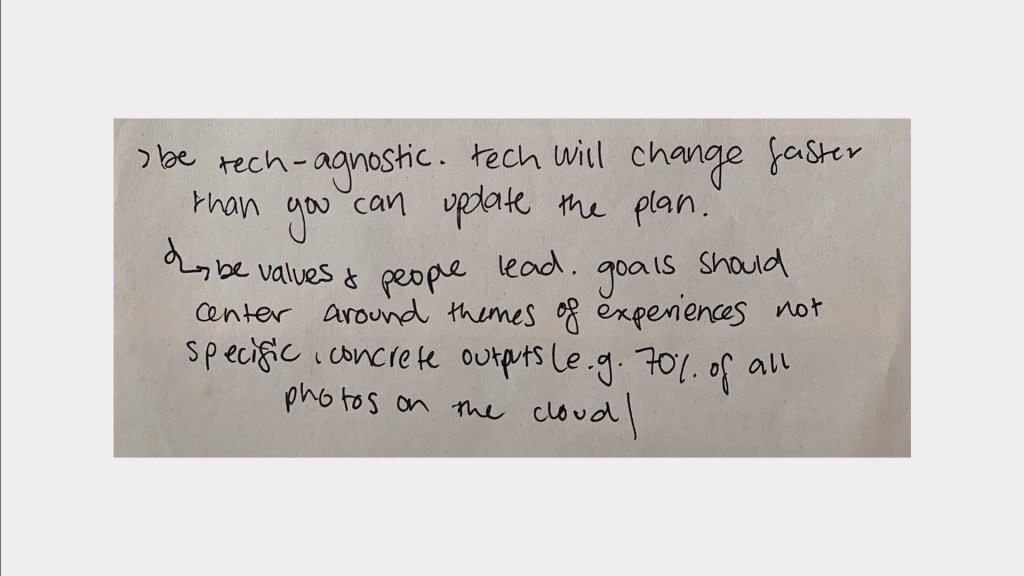 →be tech-agnostic. tech will change faster
than you can update the plan.
↳be values & people lead. goals should
center around themes of experiences not
specific, concrete outputs (e.g. 70% of all
photos on the cloud)